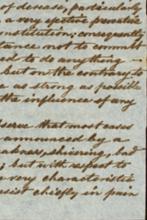 of disease, particularly
a very effective preventive
constitution; consequently
stance not to commit
ed to do anything
but on the contrary to
e as strong as possible
the influence of any
serve that most cases
announced by a
shivering, and
; but with respect to
very characteristic
chiefly in pain